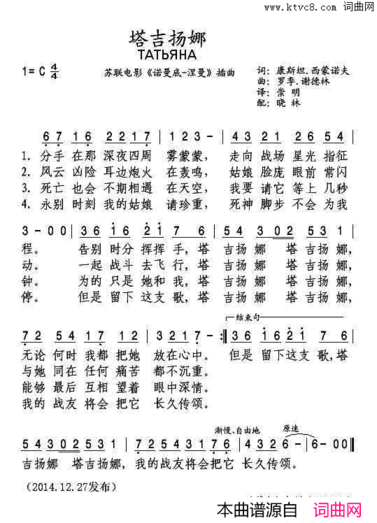 www.ktvc8.com 词曲网
塔吉扬娜
ТАТЬЯНА
1=C 4/4
苏联电影《诺曼底-涅曼》插曲
词：康斯坦.西蒙诺夫
曲：罗季.谢德林
译：崇明
配：晓林
6 7 1 6 2 2 1 6 1 2 1 - 4 3 2 1 6 5 4 3 2 4
1. 分手在那深夜四周 雾蒙蒙， 走向战场星光指征
2. 风云凶险耳边炮火 在轰鸣， 姑娘脸庞眼前常闪
3. 死亡也会不期相遇 在天空， 我要请它等上几秒
4. 永别时刻我的姑娘 请珍重， 死神脚步不会为我
3 - 0 0 3 6 1 6 2 1 7 6 5 4 3 0 2 5 3 1
程。 告别时分挥挥手，塔 吉扬娜 塔吉扬娜，
动。 一起战斗去飞行，塔 吉扬娜 塔吉扬娜，
钟。 为的只是她和我，塔 吉扬娜 塔吉扬娜，
停。 但是留下这支歌，塔 吉扬娜 塔吉扬娜，
结束句
7 2 5 4 1 7 1 2 1 7 6 - :‖ 3 6 1 6 2 1 7 6
无论何时我都把她 放在心中。 但是留下这支歌,塔
与她同在任何痛苦 都不沉重。
能够最后互相望着 眼中深情。
我的战友将会把它 长久传颂。
渐慢、自由地 原速
5 4 3 0 2 5 3 1 7 2 5 4 5 3 1 7 6 4 3 2 6 - 6 - 0 0 ‖
吉扬娜 塔吉扬娜，我的战友将会把它 长久传颂。
（2014.12.27发布）
本曲谱源自 词曲网